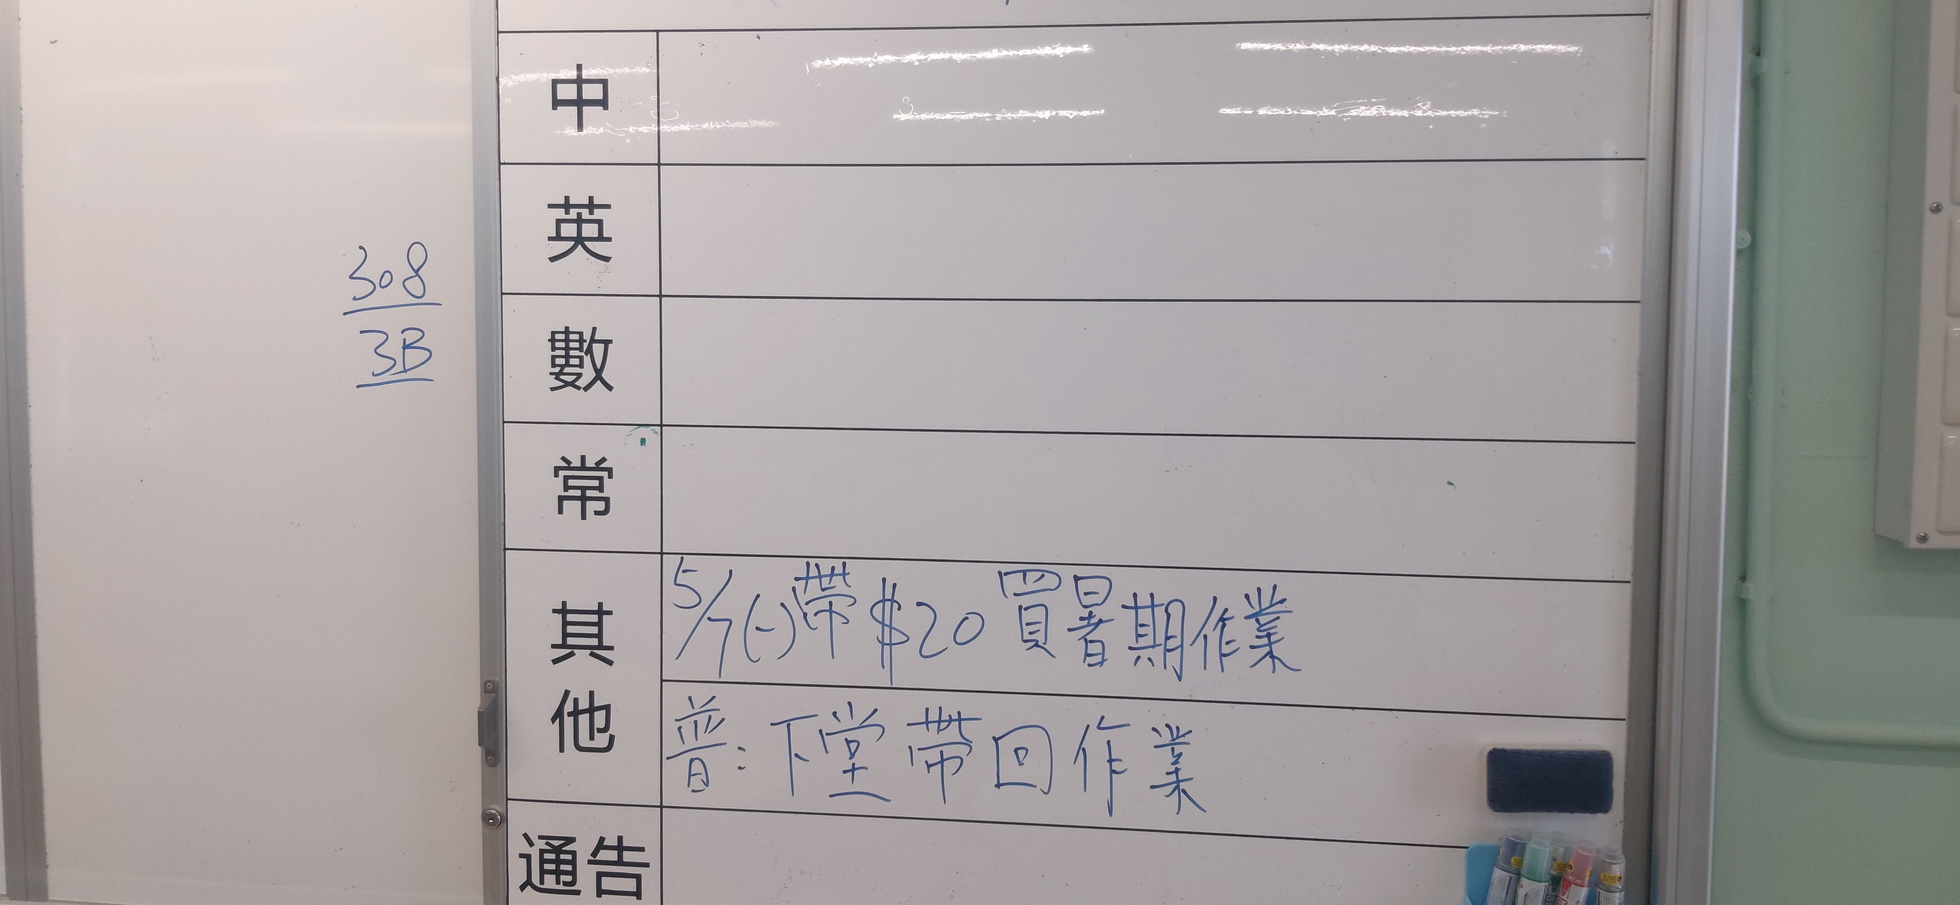 308
3B
中
英
數
常
其他
5/7(一)帶$20買暑期作業
普：下堂帶回作業
通告